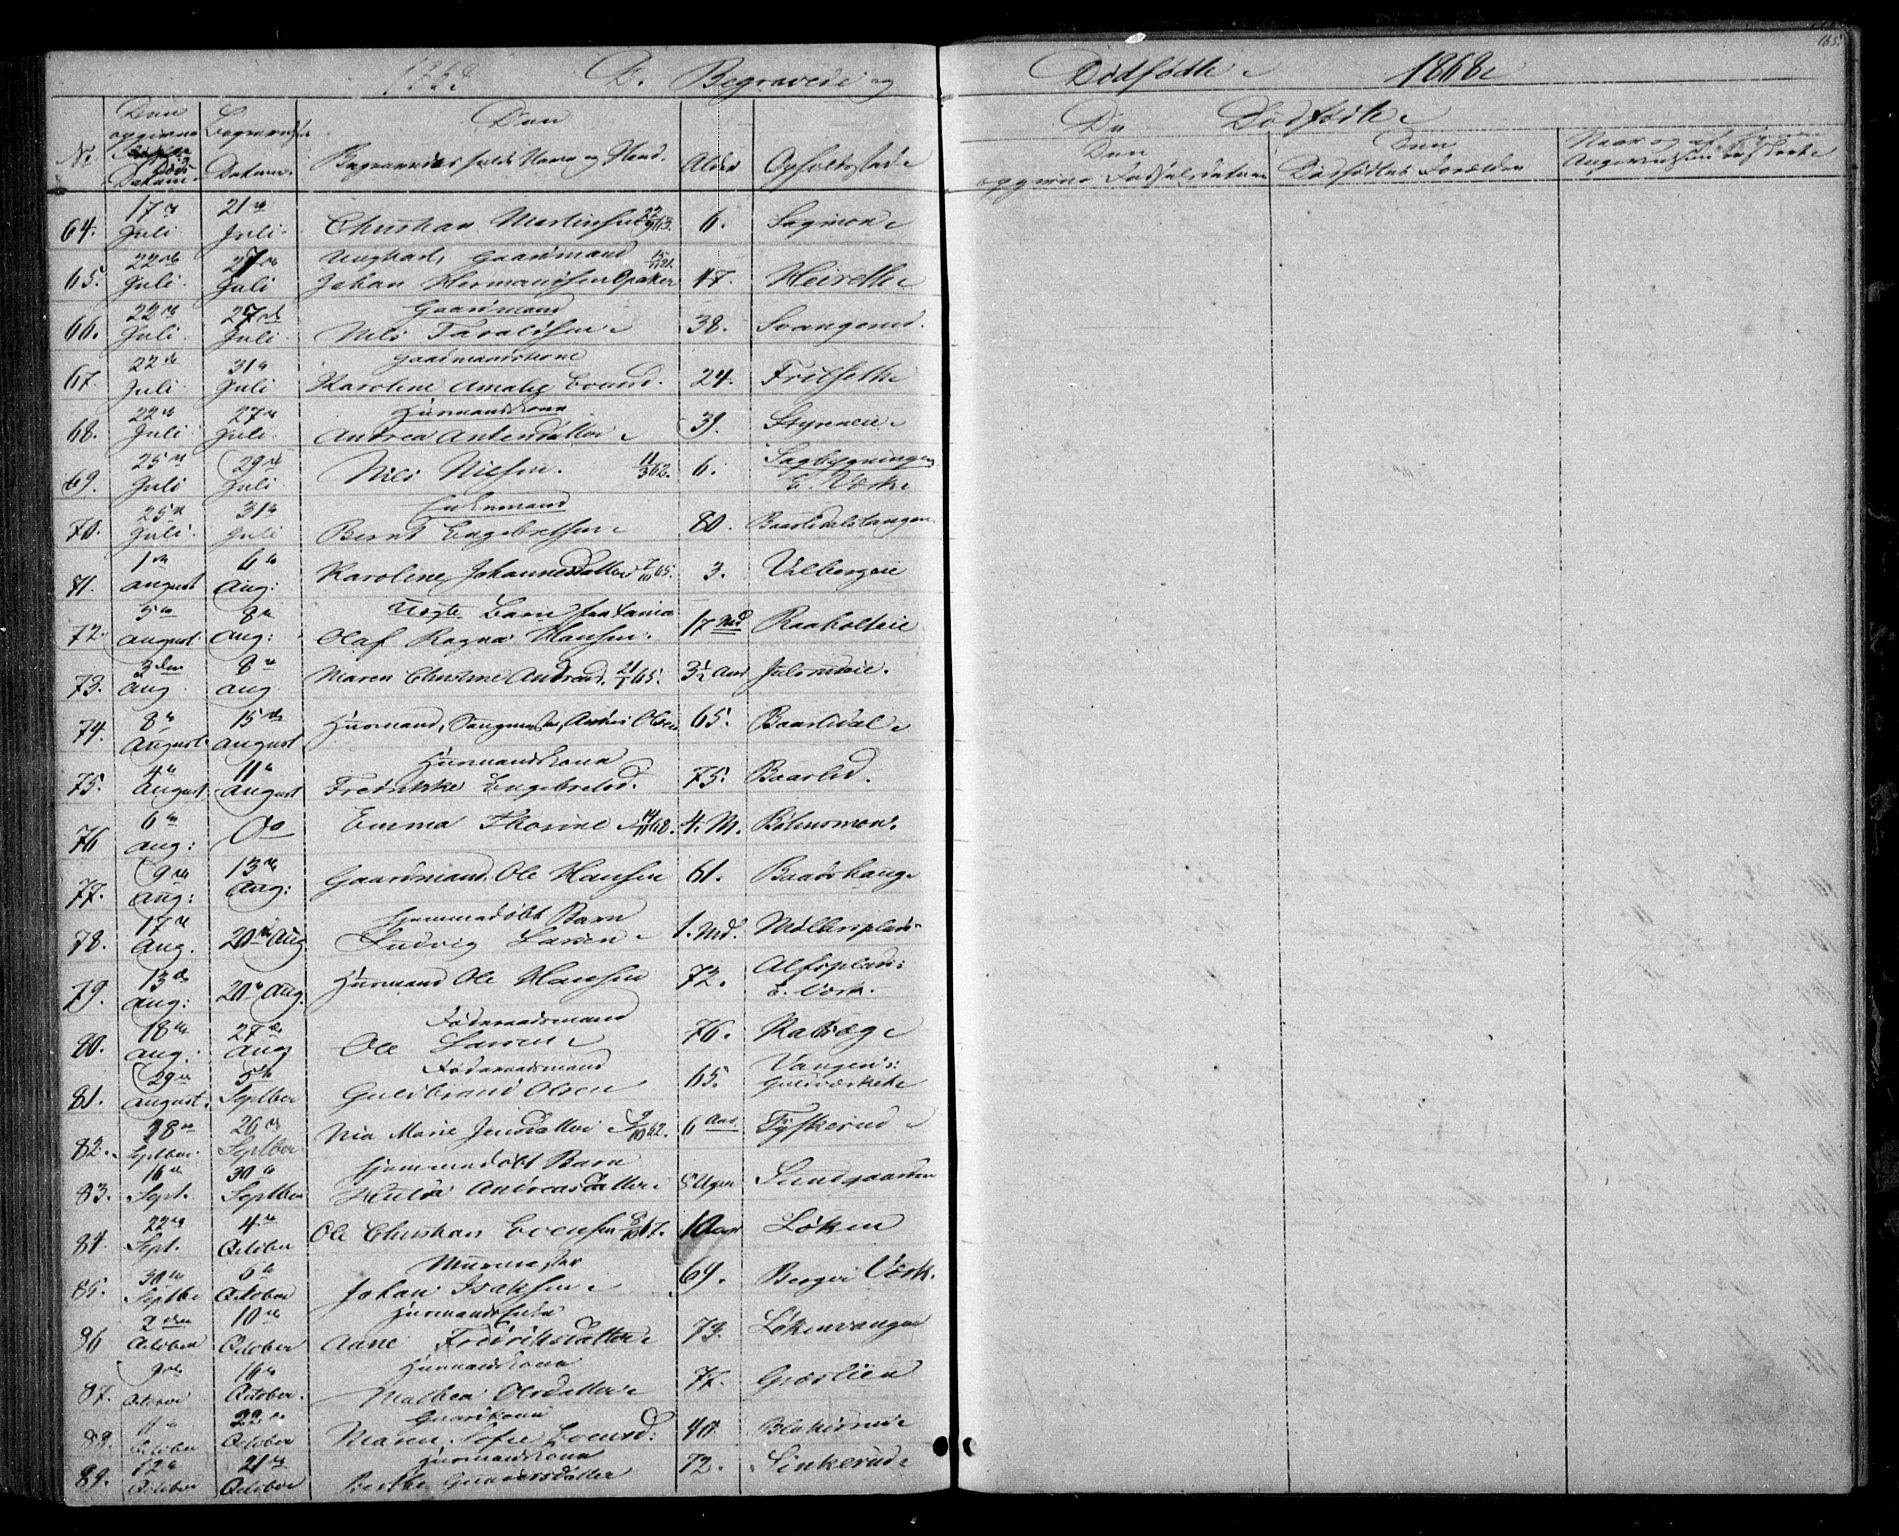 1868. D. Begravede og Dødfødte 1868
165.
No. Den opgivne Døds Datum. Begravelses Datum. Den Begravedes fulde Navn og Stand. Alder Opholdssted
De Dødfødte
Den opgivne Fødselsdatum Den Dødfødtes Forældre Naar og af
64. 17de Juli 21de Juli. Christian Martinsen 22/9 63. 6. Sagmoen
65. 22de Juli. 27de Juli Ungkarl, Gaardmand
Johan Hermansen Opaker 47. Heireth
66. 22de Juli. 27de Juli. Gaardmand
Nils Taraldsen 38. Svangerud.
67. 22de Juli. 31te Juli Gaardmandskone
Karoline Amalie Evensd. 24. Frilseth
68. 22de Juli 27de Juli. Huusmandskone
Andrea Antensdatter 39. Styrieie
69. 25de Juli 29de Juli. Nils Nilsen. 11/3 62. 6. Sagbygningen
E. Værk
70. 25de Juli. 31te Juli Enkemand
Bernt Engebretsen 80. Baarlidalstangen
81. 1ste August 6te Aug: Karoline Johannesdatter 7/10 65. 3. Vilbergeie
72. 5te August. 8de Aug: Uægte Barn fra
Olaf Ragna Hansen. 17 Md Raaholteie
73. 3die Aug. 8de Aug. Maren Christine Andersd. 21/1 65. 3½ Aar Julsrudeie.
74. 8de August. 15de August Huusmand, Sangmester, Anders Olsen 65. Baarlidal
75. 4de August 11te August Huusmandskone
Fredrikke Engebretsd. 75. Baarlid.
76 6te Aug: Do Emma Thorine 68. 4. M. Bølensmoen.
77. 9de Aug: 13de Aug: Gaardmand Ole Hansen 61. Baardshaug
78. 17de Aug. 20de Aug. Hjemmedøbt Barn
Ludvig Larsen 1. Md. Møllerplads
79. 13de Aug: 20de Aug. Huusmand Ole Hansen 72. Alfsplads:
E. Værk.
80. 18de Aug: 27de Aug Føderaadsmand
Ole Larsen 76. Rabæg
81. 29de August. 5te Septber Føderaadsmand
Guldbrand Olsen 65. Vangens:
Guldværket
82. 18de Septber. 26de Septber Nia Marie Jensdatter 9/10 62. 6 Aar. Tyskerud
83. 16de Sept. 30te Septber Hjemmedøbt Barn
Hulda Andreasdatter 5 Uger Sundgaarden
84. 22de Sept. 4de October Ole Christian Evensen 67. 1 Aar Løken
85. 30te Septbr 6te October Muurmester
Johan Isaksen 69. Berger Værk.
86 2den October 10de October Huusmandsenke
Anne Fredriksdatter 73. Løkenvangen
87. 9de October 16de October. Huusmandskone
Mathea Olsdatter 77. Græslien
88. October 22de October Gaardkone
Maren Sofie Evensd: 40 Blakisrud
89. 12te October 21de October Huusmandskone
Berthe Gundersdatter 72. Sinkerud